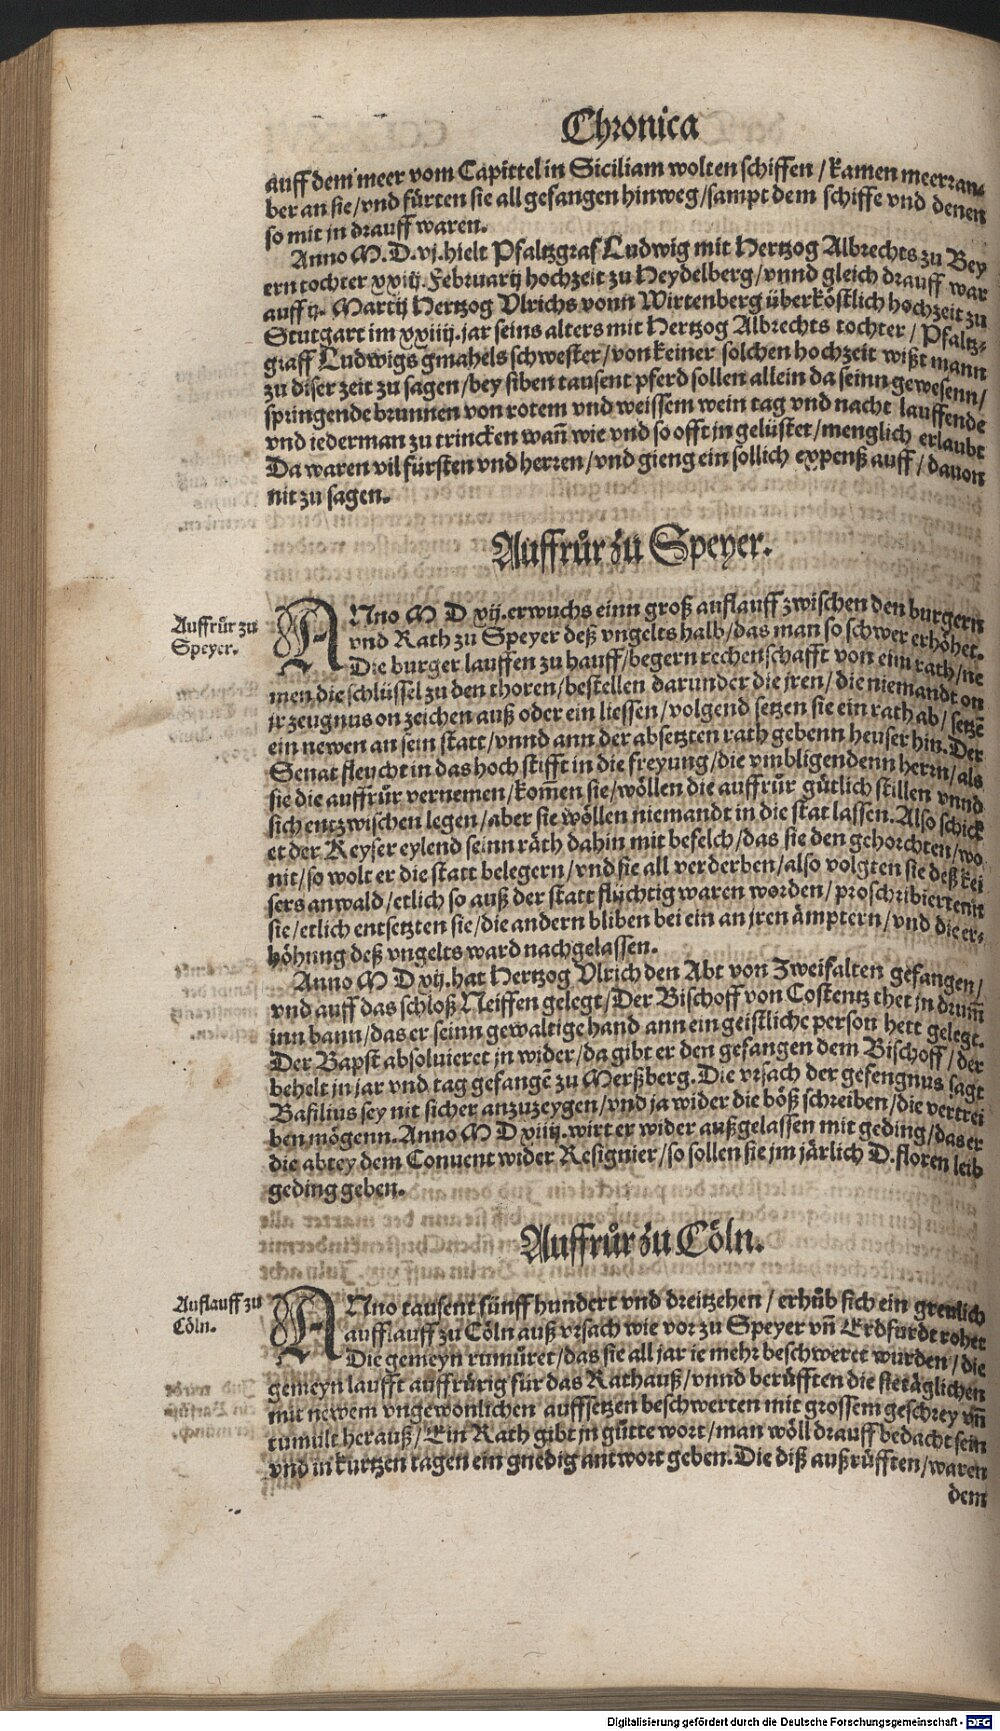 Chronica
auff dem meer vom Capittel in Siciliam wolten schiffen / kamen meerran⸗
ber an sie / vnd fürten sie all gefangen hinweg / sampt dem schiffe vnd denen
so mit jn drauff waren.
Anno M. D. vj. hielt Pfaltzgraf Ludwig mit Hertzog Albrechts zu Bey
ern tochter xxiij. Februarij hochzeit zu Heydelberg / vnnd gleich drauff war
auff ij. Martij Hertzog Vlrichs vonn Wirtenberg überköstlich hochzeit zu
Stutgart im xxiiij. jar seins alters mit Hertzog Albrechts tochter / Pfaltz⸗
graff Ludwigs gmahels schwester / von keiner solchen hochzeit wißt mann
zu diser zeit zu sagen / bey siben tausent pferd sollen allein da seinn gewesenn /
springende brunnen von rotem vnd weissem wein tag vnd nacht lauffende
vnd iederman zu trincken wañ wie vnd so offt jn gelüstet / menglich erlaubt
Da waren vil fürsten vnd herren / vnd gieng ein sollich expenß auff / dauon
nit zu sagen.
Auffrůr zů Speyer.
Auffrůr zu
Speyer.
ANno M D xij. erwuchs einn groß auflauff zwischen den burgern
vnd Rath zu Speyer deß vngelts halb / das man so schwer erhöhet.
Die burger lauffen zu hauff / begern rechenschafft von eim rath / ne
men die schlüssel zu den thoren / bestellen darunder die jren / die niemandt on
jr zeugnus on zeichen auß oder ein liessen / volgend setzen sie ein rath ab / setzẽ
ein newen an sein statt / vnnd ann der absetzten rath gebenn heuser hin. Der
Senat fleucht in das hoch stifft in die freyung / die vmbligendenn herrn / als
sie die auffrůr vernemen / kom̃en sie / wöllen die auffrůr gütlich stillen vnnd
sich entzwischen legen / aber sie wöllen niemandt in die stat lassen. Also schick
et der Keyser eylend seinn räth dahin mit befelch / das sie den gehorchten / wo
nit / so wolt er die statt belegern / vnd sie all verderben / also volgten sie deß kei
sers anwald / etlich so auß der statt flüchtig waren worden / proscribiertenn
sie / etlich entsetzten sie / die andern bliben bei ein an jren ämptern / vnd die er⸗
höhung deß vngelts ward nachgelassen.
Anno M D xij. hat Hertzog Vlrich den Abt von Zweifalten gefangen /
vnd auff das schloß Neiffen gelegt / Der Bischoff von Costentz thet jn drum̃
inn bann / das er seinn gewaltige hand ann ein geistliche person hett gelegt.
Der Bapst absoluieret jn wider / da gibt er den gefangen dem Bischoff / der
behelt jn jar vnd tag gefangẽ zu Merßberg. Die vrsach der gefengnus sagt
Basilius sey nit sicher anzuzeygen / vnd ja wider die böß schreiben / die vertrei
ben mögenn. Anno M D xiiij. wirt er wider außgelassen mit geding / das er
die abtey dem Conuent wider Resignier / so sollen sie jm järlich D. floren leib
geding geben.
Auffrůr zů Cöln.
Auflauff zu
Cöln.
ANno tausent fünff hundert vnd dreitzehen / erhůb sich ein greulich
aufflauff zu Cöln auß vrsach wie vor zu Speyer vñ Erdfurdt rohet
Die gemeyn rumüret / das sie all jar ie mehr beschweret wurden / die
gemeyn laufft auffrürig für das Rathauß / vnnd berüfften die stetäglichen
mit newem vngewonlichen auffsetzen beschwerten mit grossem geschrey vñ
tumult herauß / Ein Rath gibt jn gütte wort / man wöll drauff bedacht sein
vnd in kurtzen tagen ein gnedig antwort geben. Die diß außrüfften / waren
dem
Digitalisierung gefördert durch die Deutsche Forschungsgemeinschaft - DFG